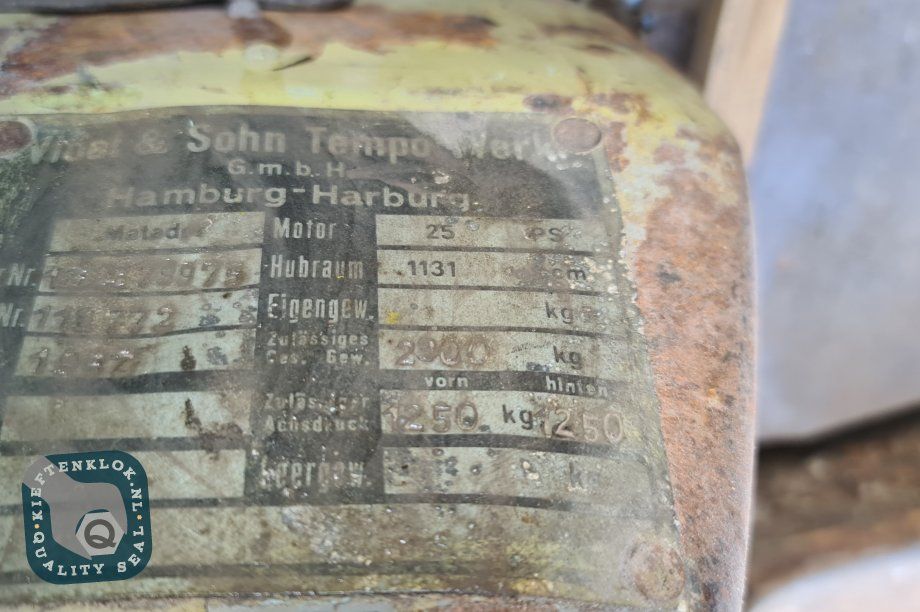 Vidal & Sohn Tempo Werk
G.m.b.H.
Hamburg-Harburg
Matador Motor 25 PS
Nr. Hubraum 1131 ccm
Nr. Eigengew. kg
Zulässiges
Ges. Gew. 2900 kg
vorn hinten
Zulässiger
Achsdruck 1250 kg 1250
kg
KIEFTENKLOK.NL
QUALITY SEAL
Q